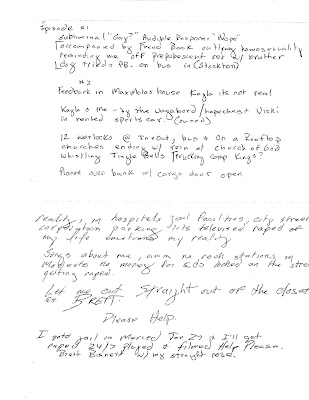 Episode #1
subliminal "Gay?" Audible Response "Nope"
accompanied by Freud Book outlining homosexuality
reminding me off prepubescent sex w/ brother
1 day tried PB. on bus in (Stockton)
#2
Feedback in Maxpolos house Kayla its not real
Kayla & Me - by the Vagabond / hopechest Vicki
in rented sports car. (owned)
12 warlocks @ In&out, bus & On a Rooftop
churches ending w/ rain at church of God
Whistling Jingle Bells Trucking Comp Kings?
Plane over bank w/ cargo door open
reality, in hospitals Jail facilities, city street
corporation parking lots televised raped of
my life emotions my reality.
Songs about me, am no rock stations in
Modesto no money for Ed. looked on the stree
getting raped.
Let me out Straight out of the closet
BRETT.
Please Help.
I goto jail in Merced Jan 27 & I'll get
raped 24/7 played & filmed Help Please.
Brett Bisnett w/ my straight rose.